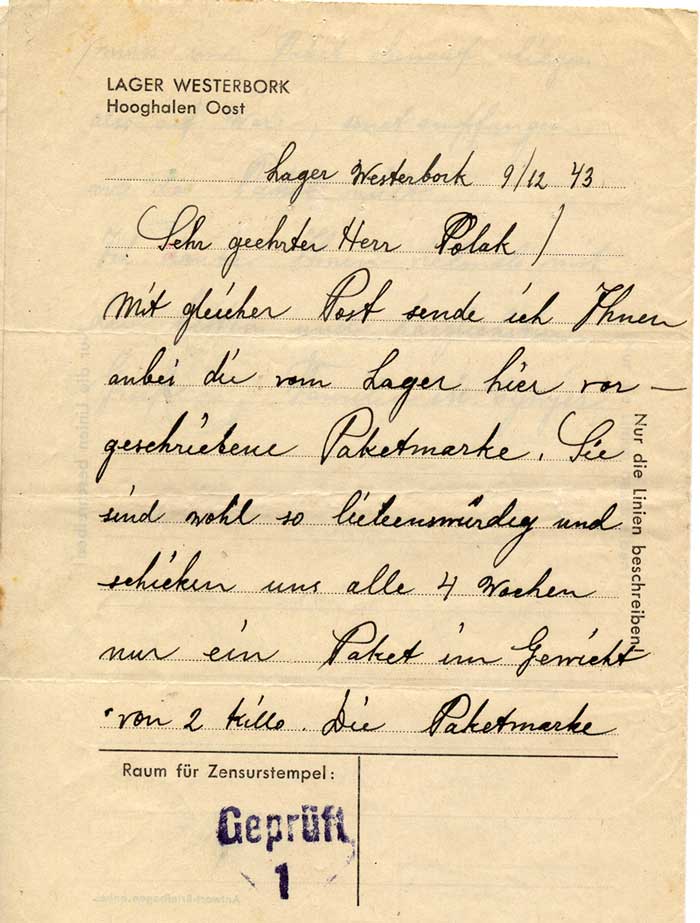 LAGER WESTERBORK
Hooghalen Oost
Lager Westerbork 9/12 43
Sehr geehrter Herr Polak /
Mit gleicher Post sende ich Ihnen
anbei die vom Lager hier vor-
geschriebene Paketmarke. Sie
sind wohl so liebenswürdig und
schicken uns alle 4 Wochen
nur ein Paket im Gewicht
von 2 Killo. Die Paketmarke
Nur die Linien beschreiben!
Raum für Zensurstempel:
Geprüft
1